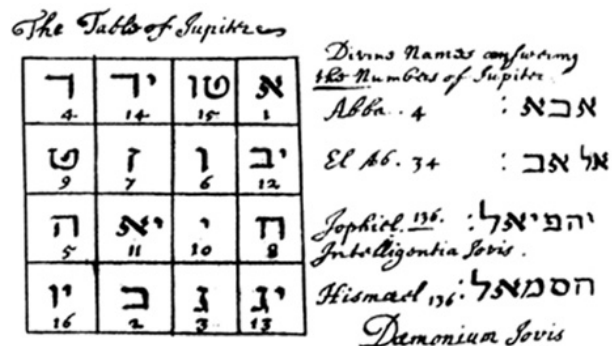 The Table of Jupiter
ד יד טו א
4 14 15 1
ט ז ו יב
9 7 6 12
ה יא י ח
5 11 10 8
יו ב ג יג
16 2 3 13
Divine Names answering
the Numbers of Jupiter
Abba. 4 : אבא
El Ab. 34 : אל אב
Johphiel. 136. : יהפיאל
Intelligentia Jovis.
Hismael 136 : הסמאל
Dæmonium Jovis